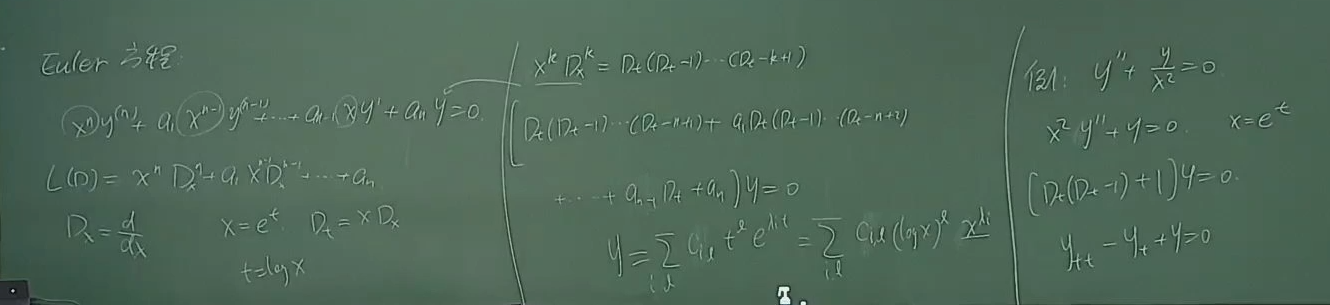 Euler 方程:
xⁿy⁽ⁿ⁾ + a₁xⁿ⁻¹y⁽ⁿ⁻¹⁾ + ⋯ + aₙ₋₁xy' + aₙy = 0.
L(D) = xⁿDₓⁿ + a₁xⁿ⁻¹Dₓⁿ⁻¹ + ⋯ + aₙ
Dₓ = d/dx x = eᵗ. Dₜ = xDₓ
t = log x
xᵏDₓᵏ = Dₜ(Dₜ-1)⋯(Dₜ-k+1)
[Dₜ(Dₜ-1)⋯(Dₜ-n+1) + a₁Dₜ(Dₜ-1)⋯(Dₜ-n+2)
+⋯+ aₙ₋₁Dₜ + aₙ)y = 0
y = ∑_{i,l} c_{i,l} t^l e^{λ_i t} = ∑_{i,l} c_{i,l} (log x)^l x^{λ_i}
例: y'' + y/x² = 0
x²y'' + y = 0. x = eᵗ
[Dₜ(Dₜ-1)+1)y = 0.
yₜₜ - yₜ + y = 0